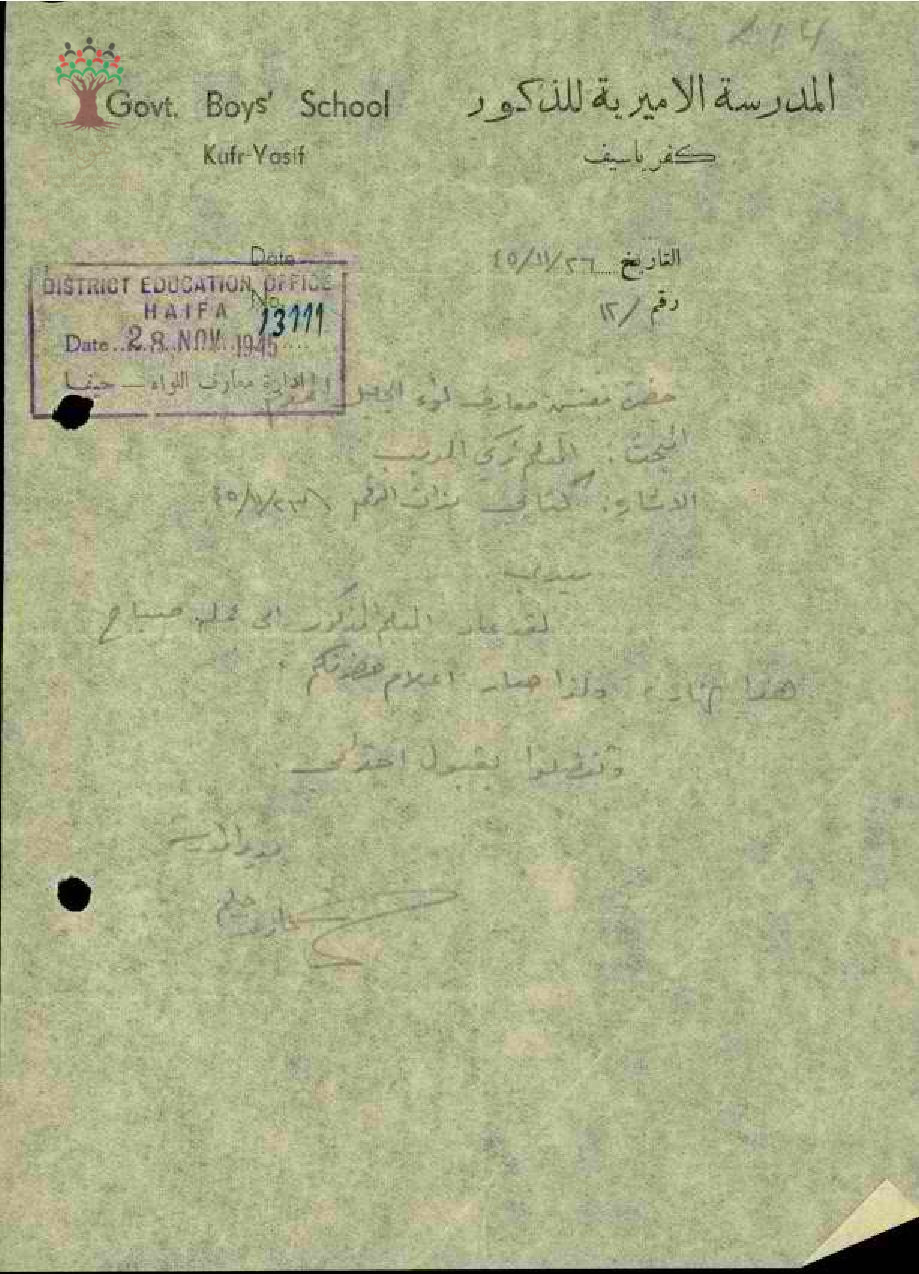 114
Govt. Boys' School
Kufr-Yasif
المدرسة الاميرية للذكور
كفر ياسيف
Date
No.
التاريخ ٤٥/١١/٢٦
رقم /١٢
DISTRICT EDUCATION OFFICE
HAIFA
13111
Date 28 NOV. 1945
ادارة معارف اللواء — حيفا
حضرة مفتش معارف لواء الجليل المحترم
المبحث: المعلم زكي
الاشارة: كتابي بذات الرقم ٤٥/١١/٢٣
سيدي
لقد عاد المعلم المذكور الى عمله صباح
هذا نهاره ولذا صار اعلام حضرتكم.
وتفضلوا بقبول احترامي.
مدير المدرسة